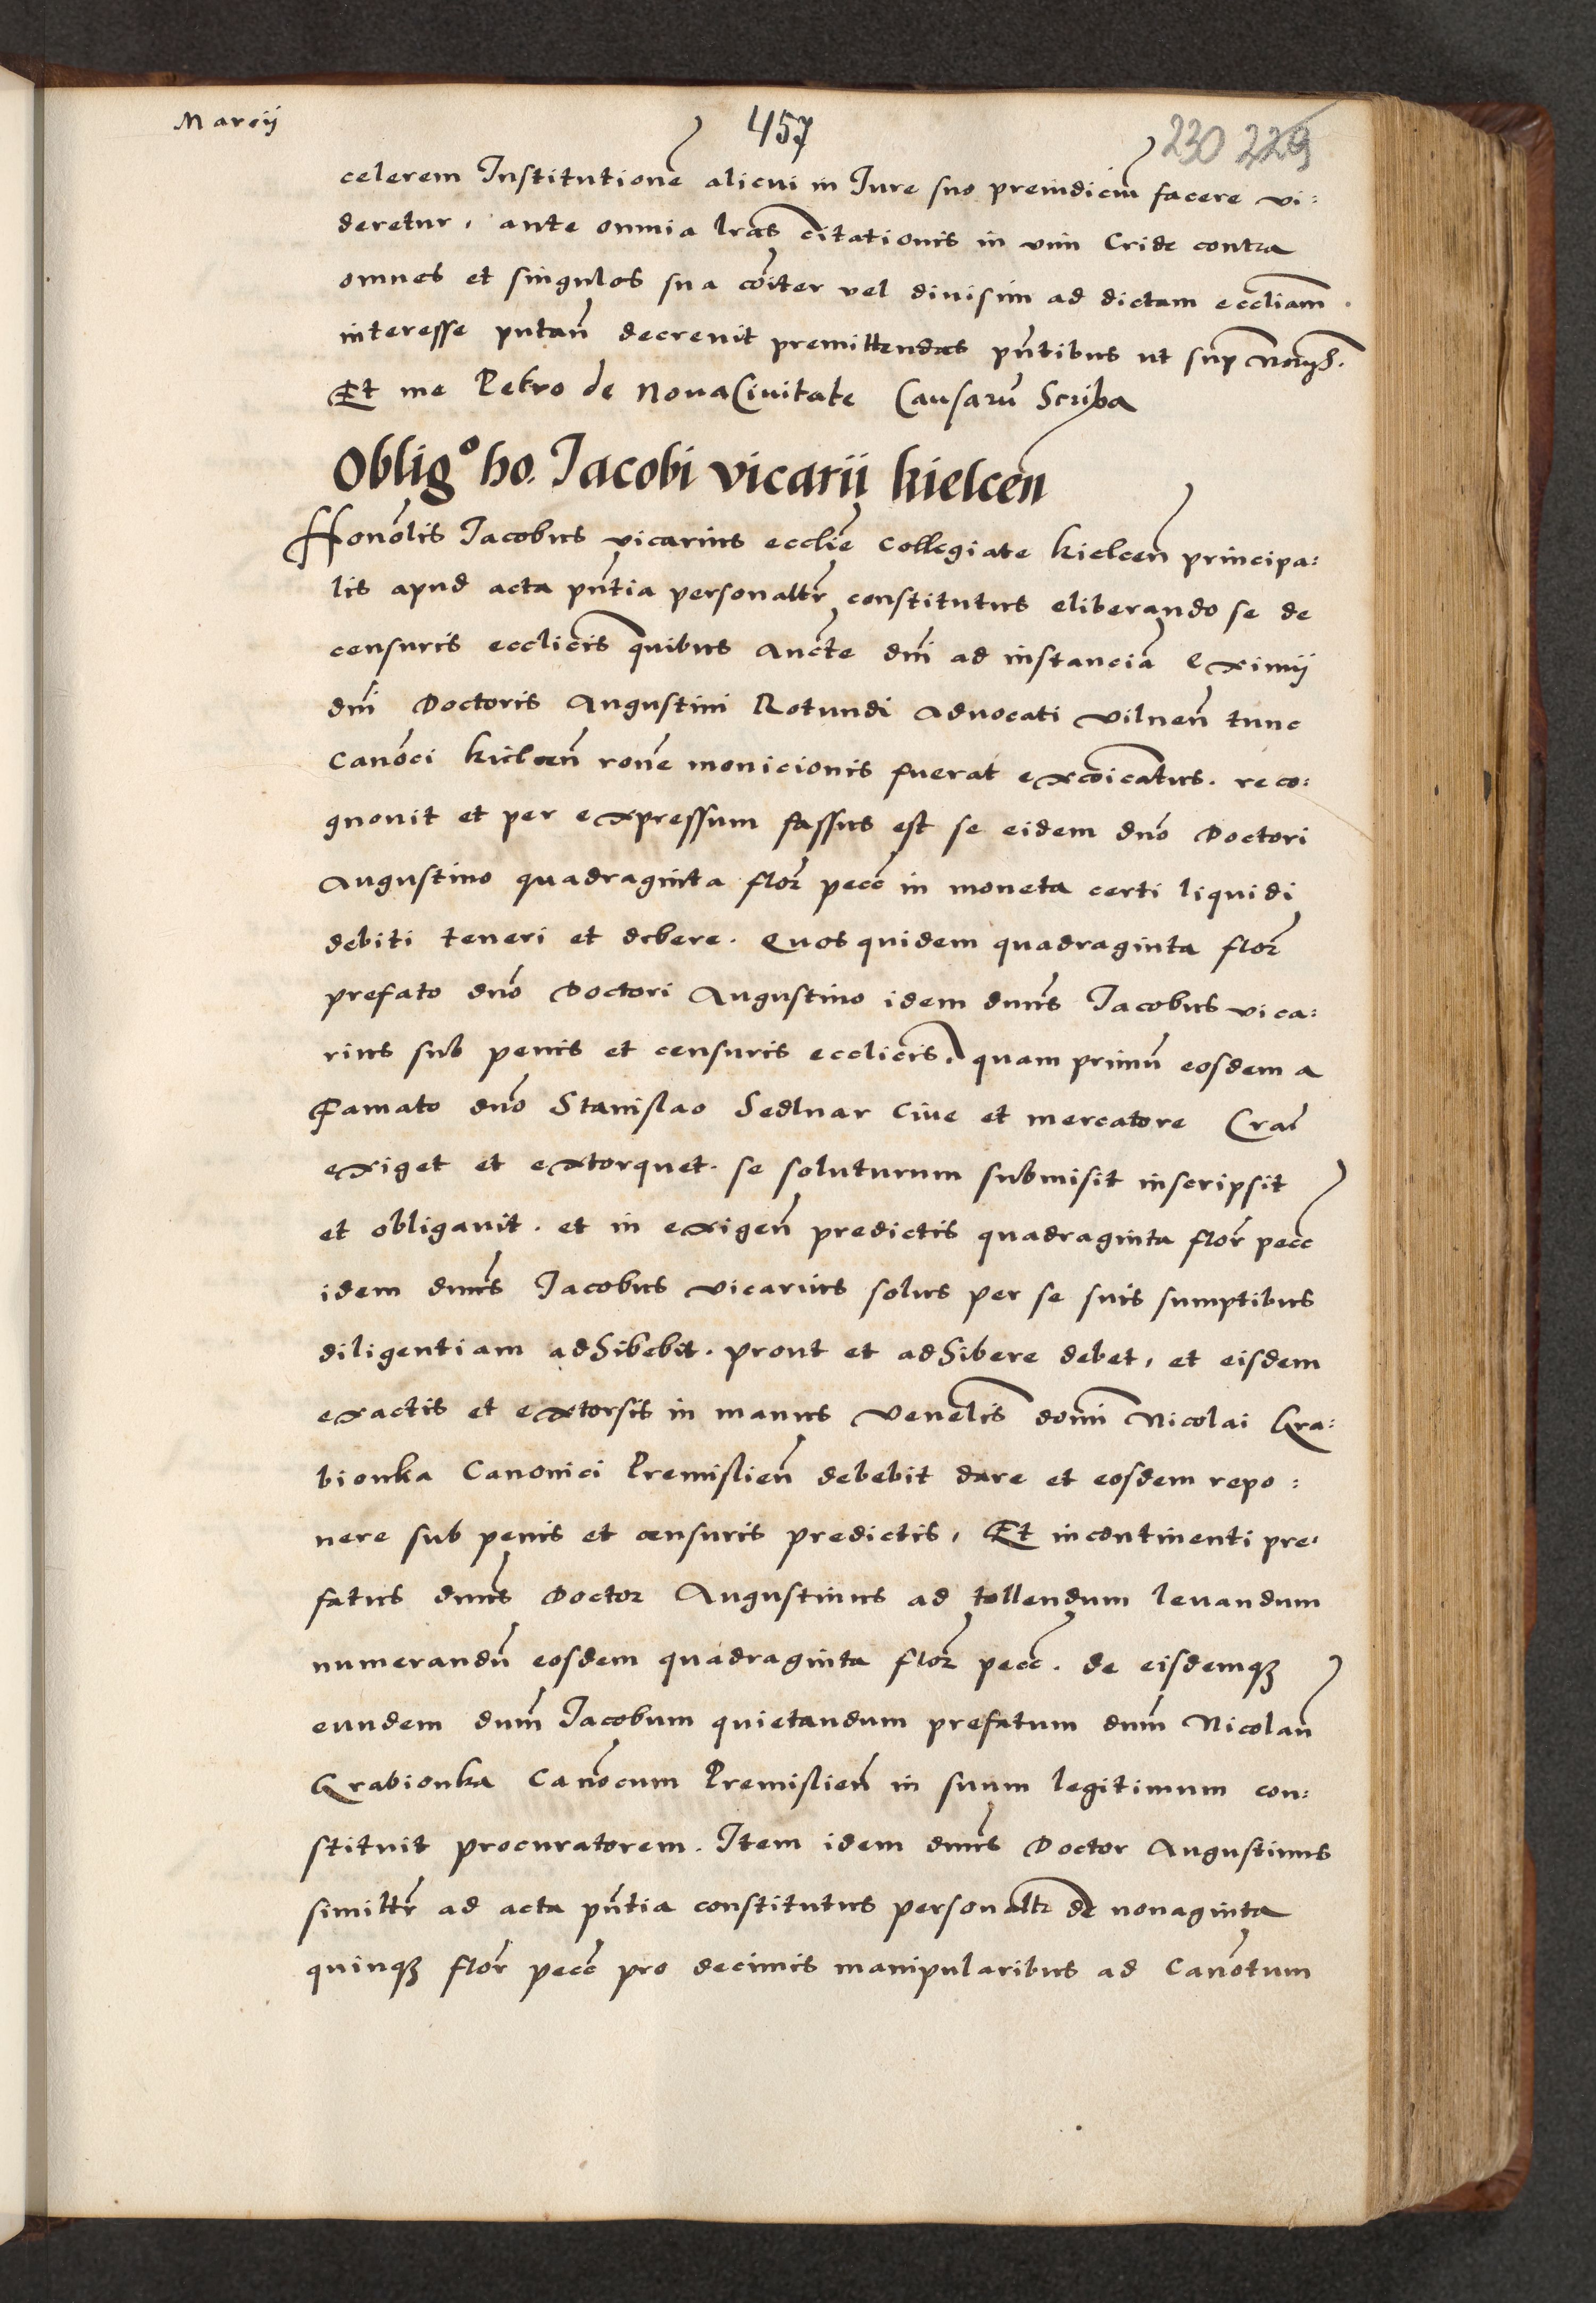 Marcii
457
230 229
celerem Institutionē alicui in Iure suo preiudiciū facere vi:
deretur, ante omnia lrās citationis in vim Cride contra
omnes et singulos sua cōiter vel divisim ad dictam eccliam.
interesse putan̄ decrevit premittendas pn̄tibus ut sup
Et me Petro de Nova Civitate Causarū Scriba
Obligo ho. Iacobi vicarii kielcen̄
Honōlis Iacobus vicarius ecclīe Collegiate kielcen̄ principa:
lis apud acta pn̄tia personaltr̄ constitutus eliberando se de
censuris ecclīcis quibus Aucte dnī ad instanciā Eximii
dnī Doctoris Augustini Rotundi Advocati vilnen̄ tunc
Canōci kielcen̄ ronē monicionis fuerat excōicatus. reco:
gnovit et per expressum fassus est se eidem dnō Doctori
Augustino quadraginta flor̄ pecc̄ in moneta certi liquidi
debiti teneri et debere. Quos quidem quadraginta flor̄
prefato dnō Doctori Augustino idem dnūs Iacobus vica:
rius sub penis et censuris ecclīcis. quam primū eosdem a
Famato dnō Stanislao Sedlnar Cive et mercatore Crac̄
exiget et extorquet. se soluturum submisit inscripsit
et obligavit. et in exigen̄ predictis quadraginta flor̄ pecc̄
idem dnūs Iacobus vicarius solus per se suis sumptibus
diligentiam adhibebit. prout et adhibere debet, et eisdem
exactis et extorsis in manus Venēlis domnī Nicolai Gra:
bionka Canonici Premislien̄ debebit dare et eosdem repo:
nere sub penis et censuris predictis, Et incontinenti pre:
fatus dnūs Doctor Augustinus ad tollendum levandum
numerandū eosdem quadraginta flor̄ pecc̄. de eisdemqȝ
eundem dnūm Iacobum quietandum prefatum dnūm Nicolaū
Grabionka Canōcum Premislien̄ in suum legitimum con:
stituit procuratorem. Item idem dnūs Doctor Augustinus
similtr̄ ad acta pn̄tia constitutus personaltr̄ de nonaginta
quinqȝ flor̄ pecc̄ pro decimis manipularibus ad Canōtum